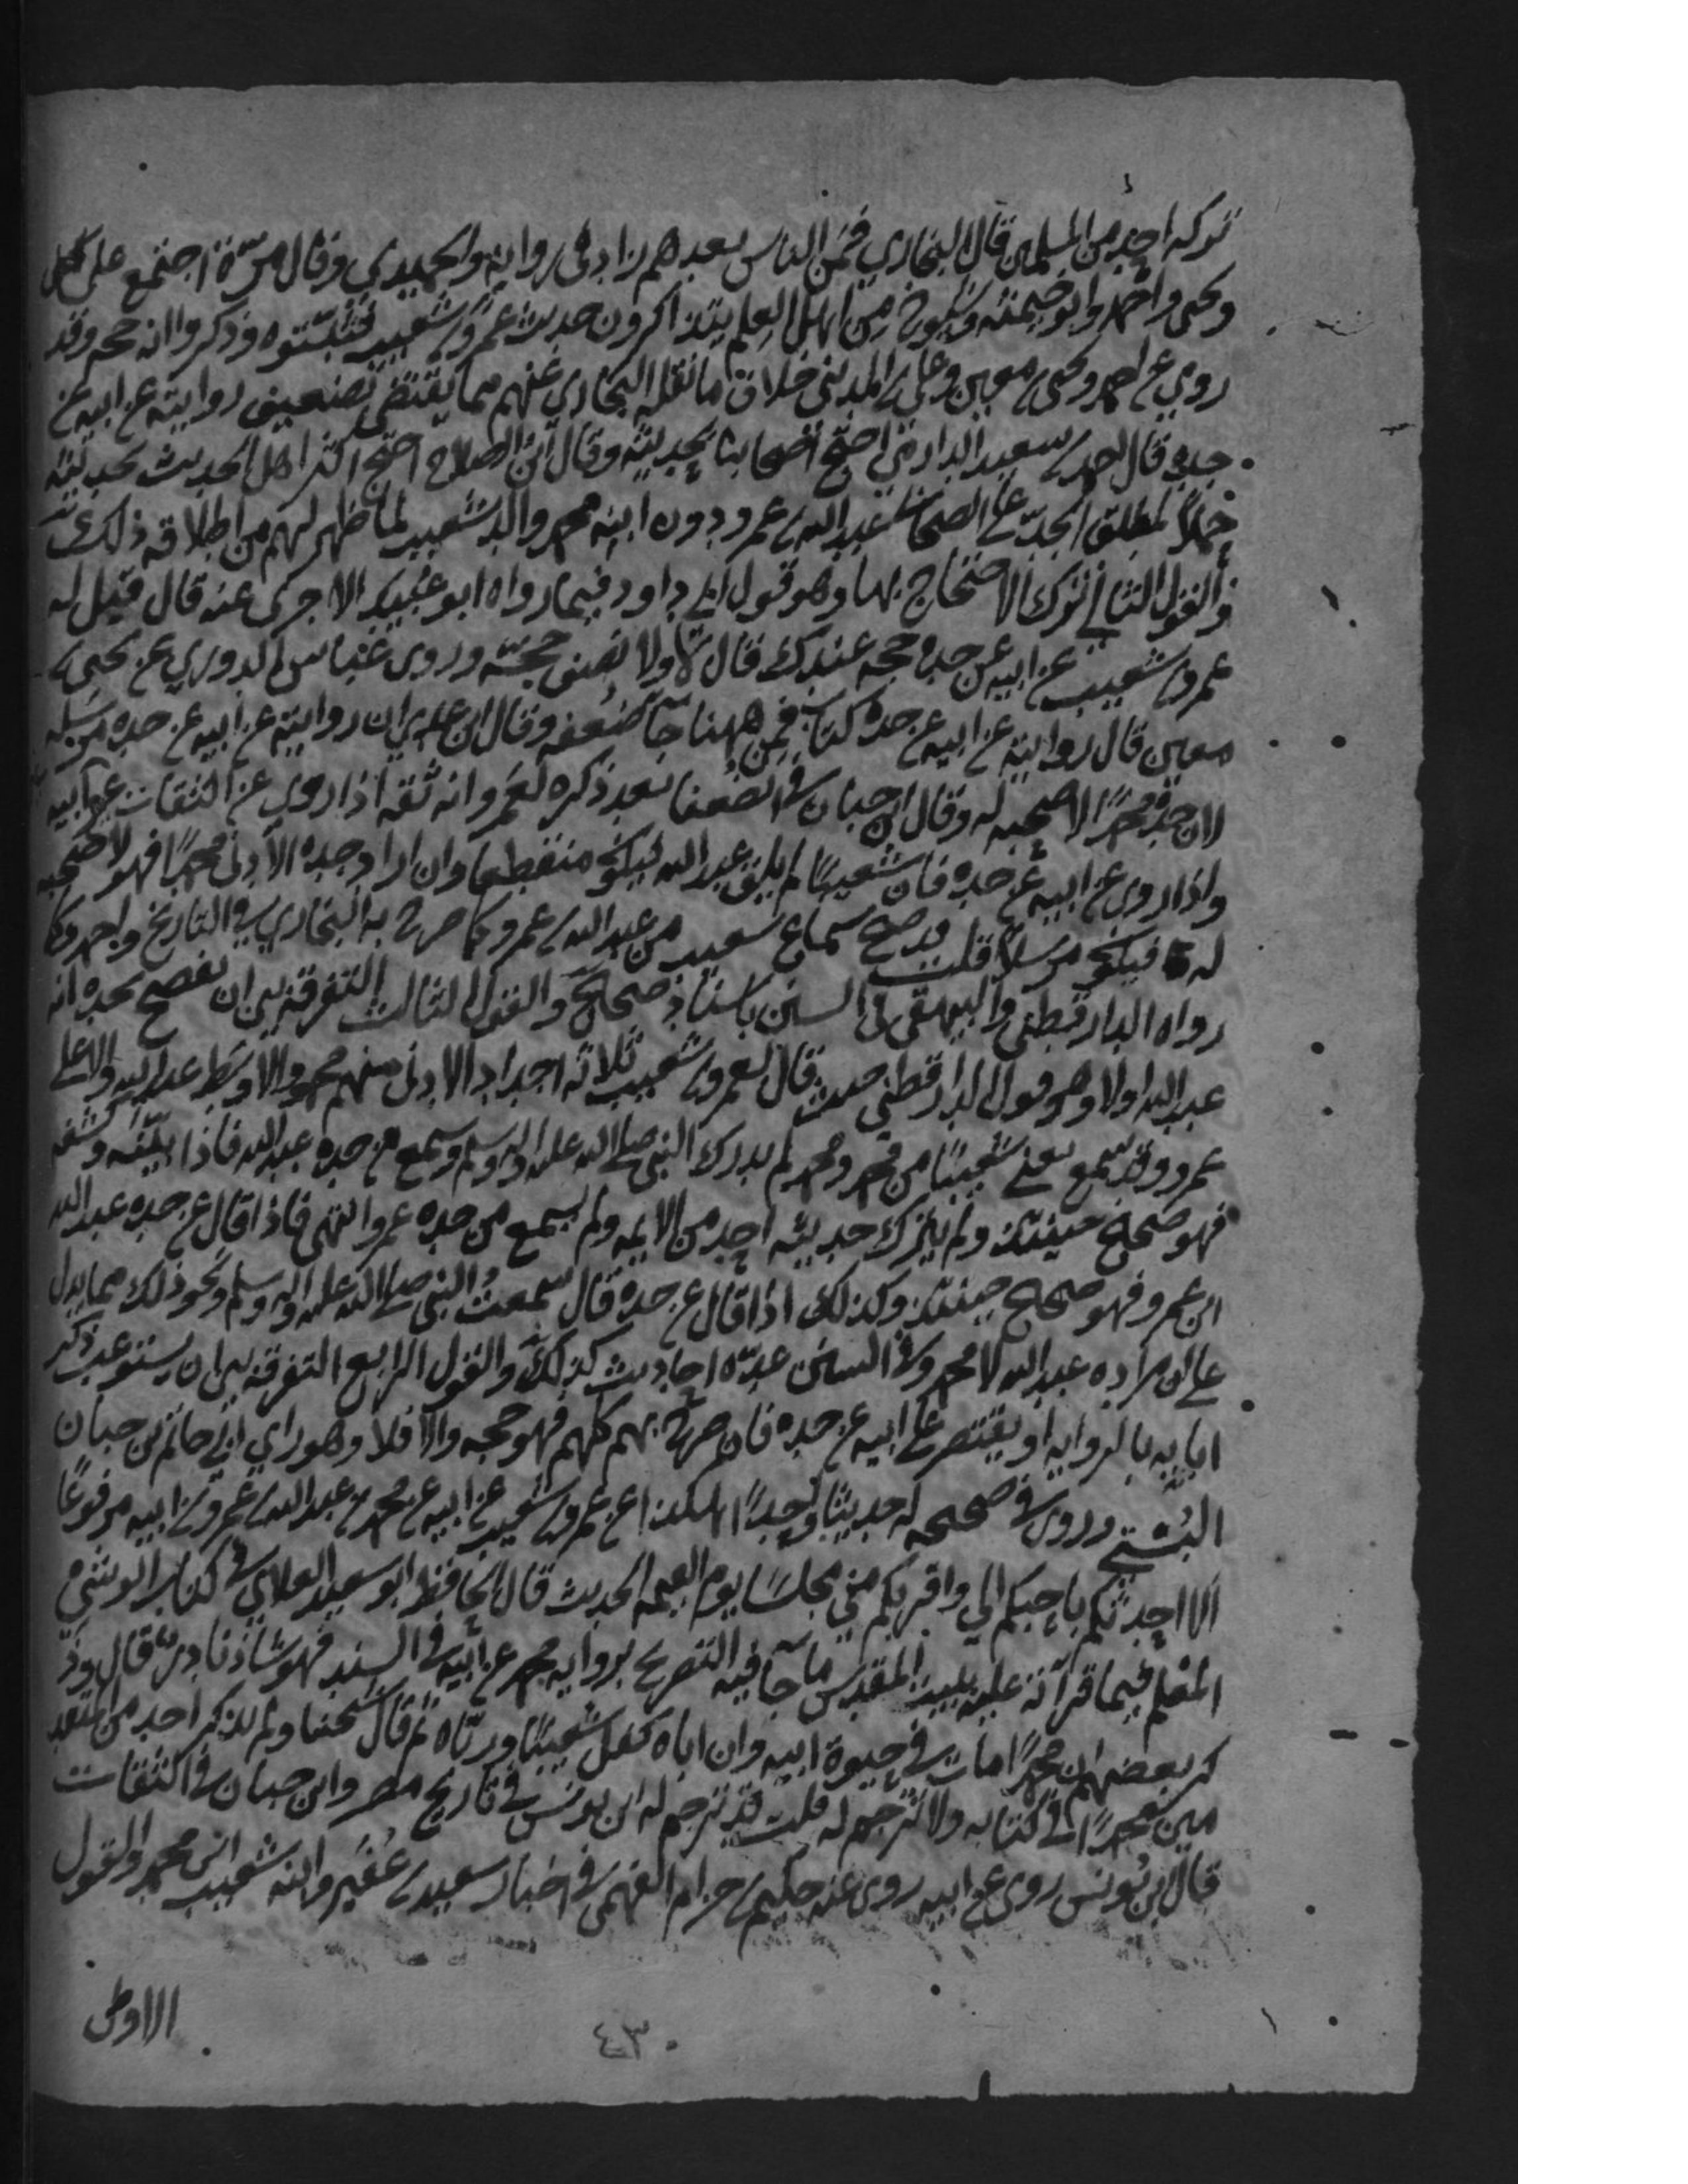 تركه احد من المسلمين قال البخاري فمن الناس بعدهم زاد في رواية والحميدي وقال مرة اجتمع علي
ويحيى واحمد وابو خيثمة وشيوخ من اهل العلم يتذاكرون حديث عمرو بن شعيب فثبتوه وذكروا انه حجه وقد
روي عن احمد ويحيى بن معين وعلي بن المديني خلاف ما نقله البخاري عنهم مما يقتضي تضعيف روايته عن ابيه عن
جده قال احمد بن سعيد الدارمي احتج اصحابنا بحديثه وقال ابن الصلاح احتج اكثر اهل الحديث بحديثه
حملا لمطلق الجد على الصحابي عبد الله بن عمرو دون ابنه محمد والد شعيب لما ظهر لهم من اطلاقه ذلك
والقول الثاني ترك الاحتجاج بها وهو قول ابي داود فيما رواه ابو عبيد الاجرى عنه قال قيل له
عمرو بن شعيب عن ابيه عن جده حجه عندك قال لا ولا نصف حجة وروى عباس الدوري عن يحيى بن
معين قال روايته عن ابيه عن جده كتاب فمن ههنا جا ضعفه وقال ابن عدي ان روايته عن ابيه عن جده مرسله
لان جده محمدا لا صحبه له وقال ابن حبان في الضعفا بعد ذكره لعمرو انه ثقه اذا روي عن الثقات غير ابيه
واذا روى عن ابيه عن جده فان شعيبا لم يلق عبد الله فيكون منقطعا وان اراد جده الادنى محمدا فهو لا صحبه
له فيكون مرسلا قلت قد صح سماع شعيب من عبد الله بن عمرو كما صرح به البخاري في التاريخ واحمد وكما
رواه الدارقطني والبيهقي في السنن باسناد صحيح والقول الثالث التفرقة بين ان يفصح بجده انه
عبد الله اولا وهو قول الدارقطني حيث قال لعمرو بن شعيب ثلاثه اجداد الادنى منهم محمد والاوسط عبد الله والاعلى
عمرو وقد سمع يعني شعيبا من محمد ومحمد لم يدرك النبي صلى الله عليه واله وسلم وسمع من جده عبد الله فاذا بينه وكشفه
فهو صحيح حينئذ ولم يترك حديثه احد من الايمه ولم يسمع من جده عمرو انتهى فاذا قال عن جده عبد الله
ابن عمرو فهو صحيح حينئذ وكذلك اذا قال عن جده قال سمعت النبي صلى الله عليه واله وسلم ونحو ذلك مما يدل
على ان مراده عبد الله لا محمد وفي السنن عدة احاديث كذلك والقول الرابع التفرقة بين ان يستوعب ذكر
ابايه بالروايه او يقتصر على ابيه عن جده فان صرح بهم كلهم فهو حجه والا فلا وهو راي ابي حاتم بن حبان
البستي وروى في صحيحه له حديثا واحدا هكذا عن عمرو بن شعيب عن ابيه عن محمد بن عبد الله بن عمرو عن ابيه مرفوعا
الا احدثكم باحبكم الي واقربكم مني مجلسا يوم القيمه الحديث قال الحافظ ابو سعيد العلاي في كتاب الوشي
المعلم فيما قراته عليه ببيت المقدس ما جا فيه التصريح برواية محمد عن ابيه في السند فهو شاذ نادر قال وذ
كر بعضهم ان محمدا مات في حيوة ابيه وان اباه كفل شعيبا ورباه ثم قال شيخنا ولم يذكر احد من المتقد
مين محمدا في كتابه ولا ترجم له قلت قد ترجم له ابن يونس في تاريخ مصر وابن حبان في الثقات
قال ابن يونس روى عن ابيه روى عنه حكيم بن حرام الفهمي في اخبار سعيد بن عفير وابنه شعيب ابن محمد والقول
الاول
٤٣